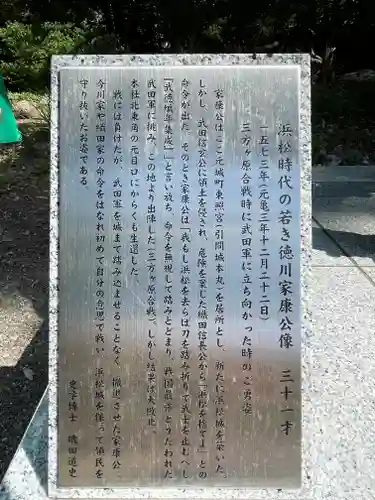 浜松時代の若き徳川家康公像　三十一才
一五七三年(元亀三年十二月二十二日)
三方ヶ原合戦時に武田軍に立ち向かった時のご勇姿
家康公は、ここ元城町東照宮(引間城本丸)を居所とし、新たに浜松城を築いた。
しかし、武田信玄公に領土を侵され、危険を案じた織田信長公から「浜松を捨てよ」との
命令が出た。そのとき家康公は「我もし浜松を去らば刀を踏み折りて武士を止むべし
『武徳編年集成』」と言い放ち、命令を無視して踏みとどまり、戦国最強とうたわれた
武田軍に挑み、この地より出陣した(三方ヶ原合戦)。しかし結果は大敗北。
本社北東角の元目口にからくも生還した。
戦には負けたが、武田軍を城まで踏み込ませることなく、撤退させた家康公。
今川家や織田家の命令をはなれ初めて自分の意思で戦い、浜松城を保って領民を
守り抜いたお姿である。
史学博士　磯田道史